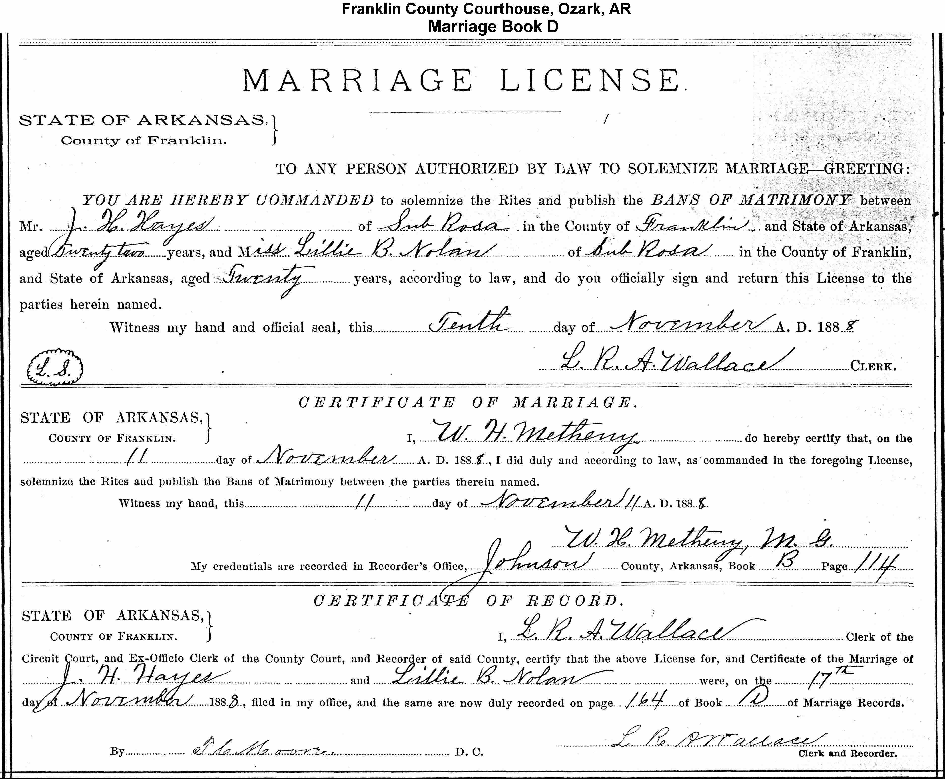 Franklin County Courthouse, Ozark, AR
Marriage Book D
MARRIAGE LICENSE.
STATE OF ARKANSAS,
County of Franklin.
TO ANY PERSON AUTHORIZED BY LAW TO SOLEMNIZE MARRIAGE—GREETING:
YOU ARE HEREBY COMMANDED to solemnize the Rites and publish the BANS OF MATRIMONY between
Mr. J. H. Hayes of Sub Rosa in the County of Franklin and State of Arkansas,
aged Twenty two years, and Miss Lillie B. Nolan of Sub Rosa in the County of Franklin,
and State of Arkansas, aged Twenty years, according to law, and do you officially sign and return this License to the
parties herein named.
Witness my hand and official seal, this Tenth day of November A. D. 1888
L. S.
L. R. A. Wallace CLERK.
CERTIFICATE OF MARRIAGE.
STATE OF ARKANSAS,
COUNTY OF FRANKLIN.
I, W. H. Metheny do hereby certify that, on the
11 day of November A. D. 1888, I did duly and according to law, as commanded in the foregoing License,
solemnize the Rites and publish the Bans of Matrimony between the parties therein named.
Witness my hand, this 11 day of November 11 A. D. 1888.
W. H. Metheny, M. G.
My credentials are recorded in Recorder's Office, Johnson County, Arkansas, Book B Page 114
CERTIFICATE OF RECORD.
STATE OF ARKANSAS,
COUNTY OF FRANKLIN.
I, L. R. A. Wallace Clerk of the
Circuit Court, and Ex-Officio Clerk of the County Court, and Recorder of said County, certify that the above License for, and Certificate of the Marriage of
J. H. Hayes and Lillie B. Nolan were, on the 17th
day of November 1888, filed in my office, and the same are now duly recorded on page 164 of Book D of Marriage Records.
By Moore D. C.
L R A Wallace
Clerk and Recorder.